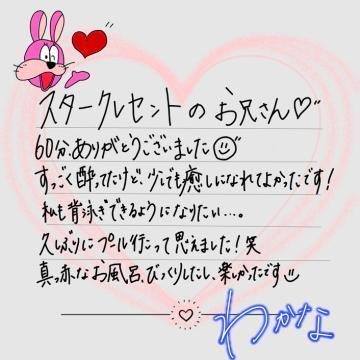 スタークレセントのお兄さん♡"
60分、ありがとうございました☺"
すっごく酔ってたけど、少しでも癒しになれてよかったです!
私も背泳ぎできるようになりたい…。
久しぶりにプール行って思えました!笑
真っ赤なお風呂、びっくりしたし、楽しかったです☺
わかな